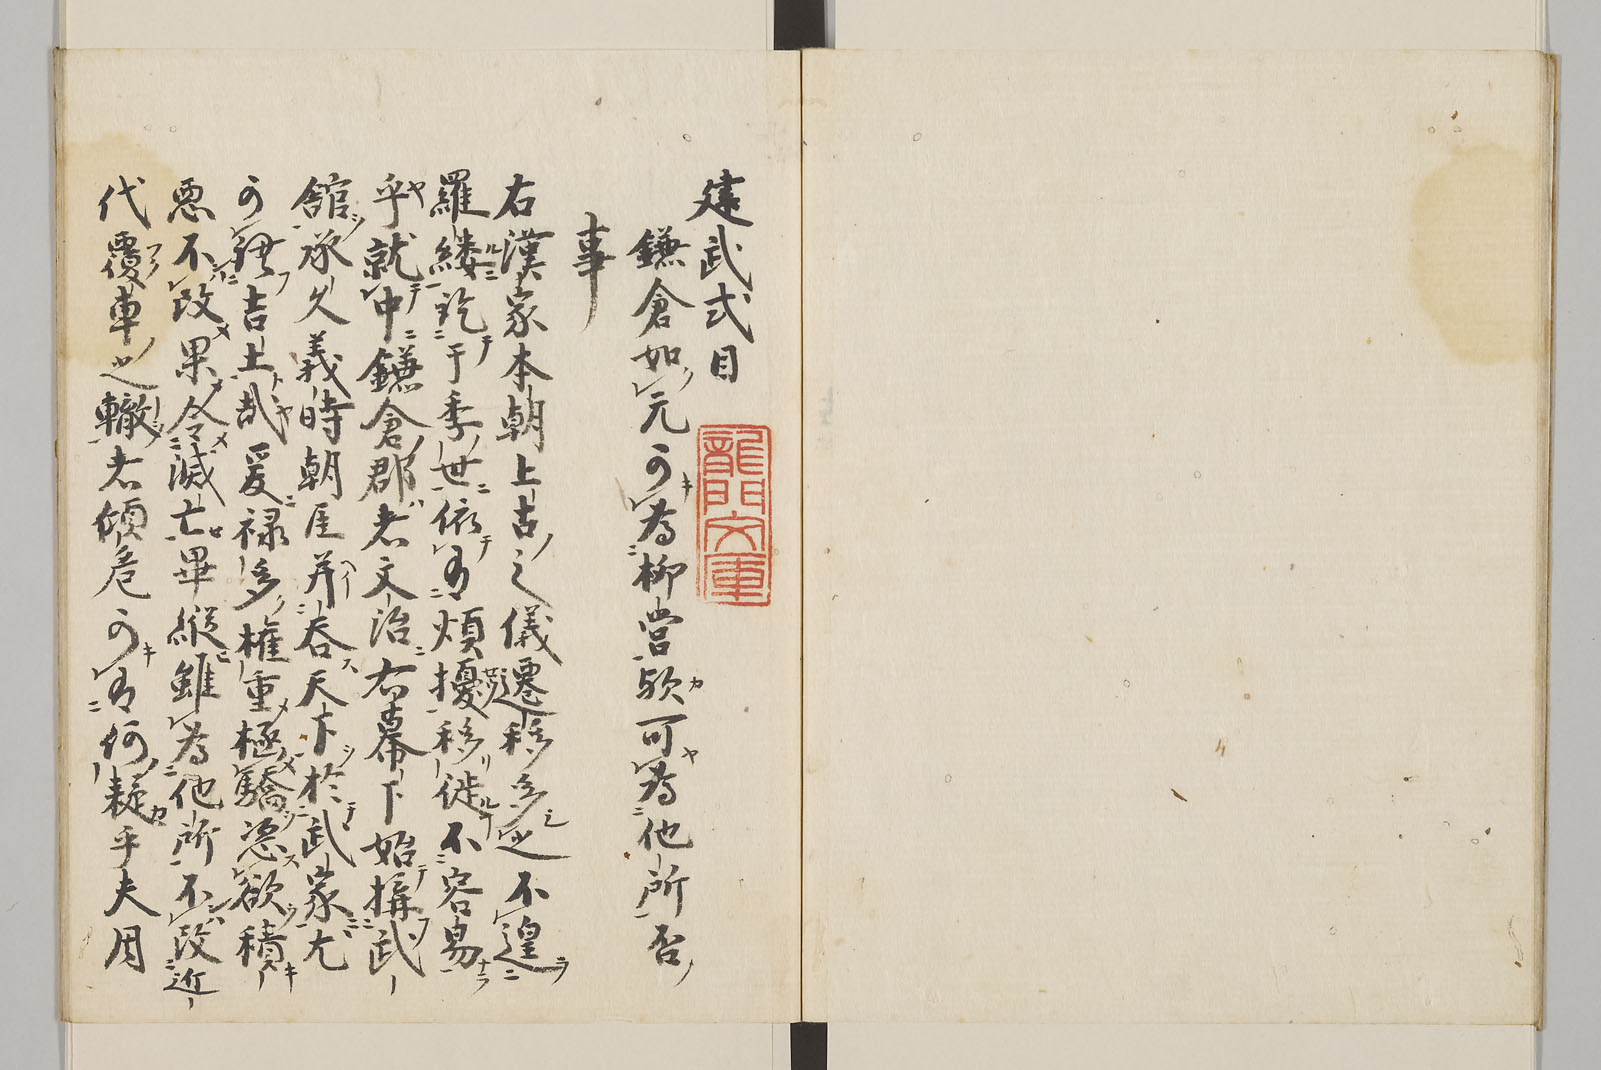 建武式目
鎌倉如元可為柳営歟可為他所否
事
右漢家本朝上古之儀遷移多之不遑
羅縷訖于季世依有煩擾移徙不容易
乎就中鎌倉郡者文治右幕下始搆武
館承久義時朝臣并呑天下於武家尤
可謂吉土哉爰禄多権重極驕恣欲積
悪不改果令滅亡畢縦雖為他所不改近
代覆車之轍者傾危可有何疑乎夫周
龍門文庫